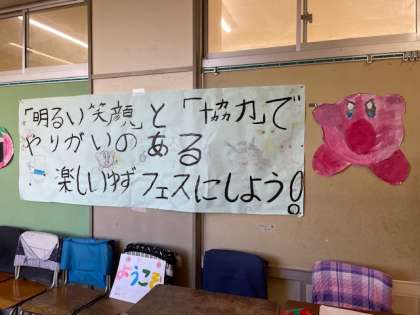 「明るい笑顔」と「協力」で
やりがいのある
楽しいゆずフェスにしよう!
ようこそ